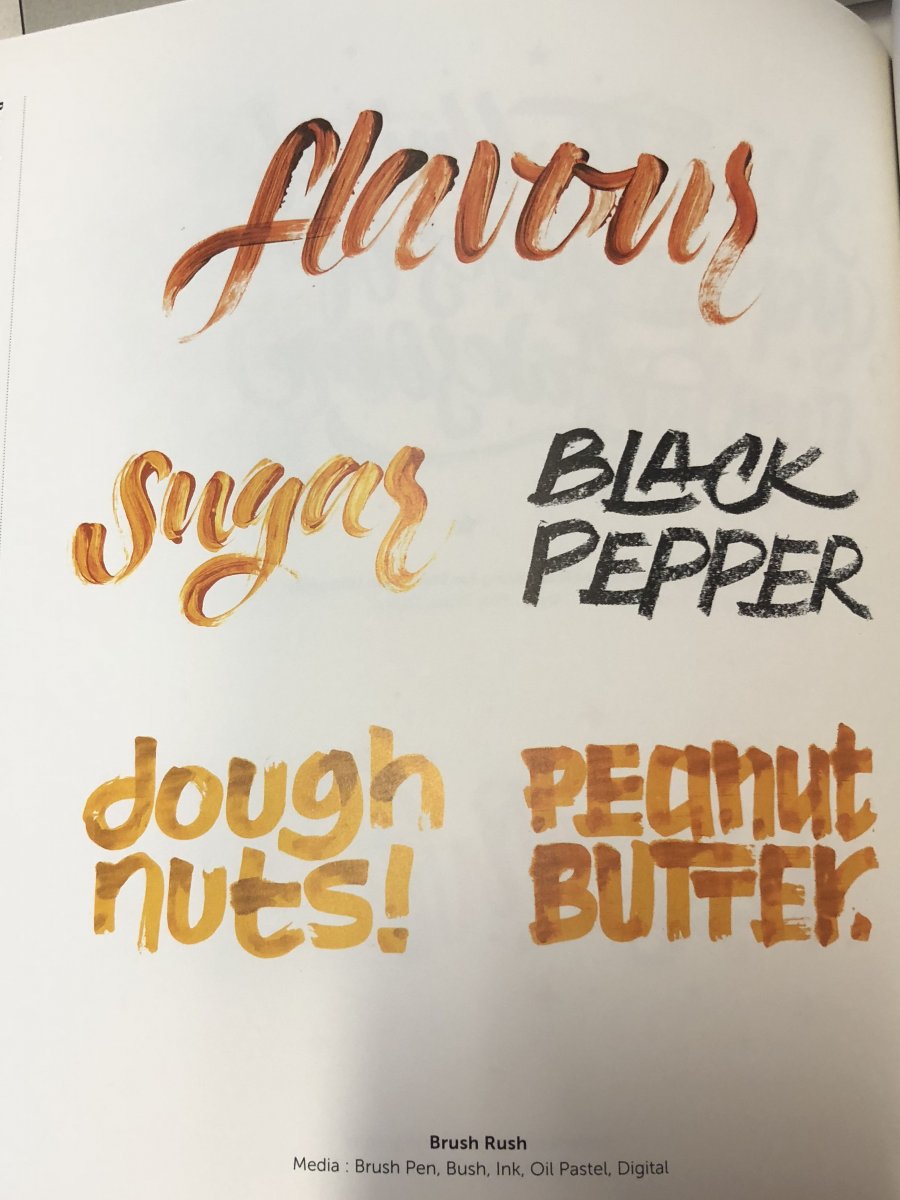 flavour
Sugar
BLACK
PEPPER
dough
nuts!
PEanut
BUTTER.
Brush Rush
Media : Brush Pen, Bush, Ink, Oil Pastel, Digital